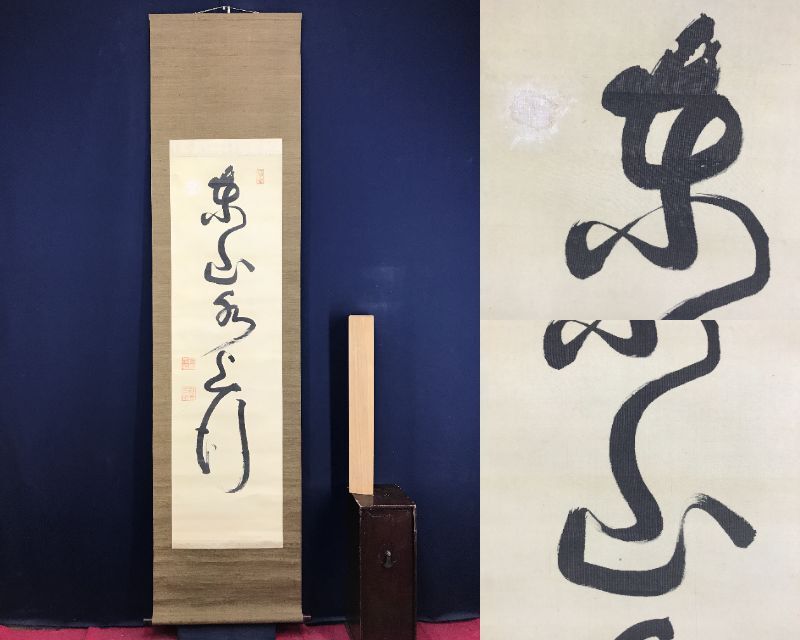 東山水上行